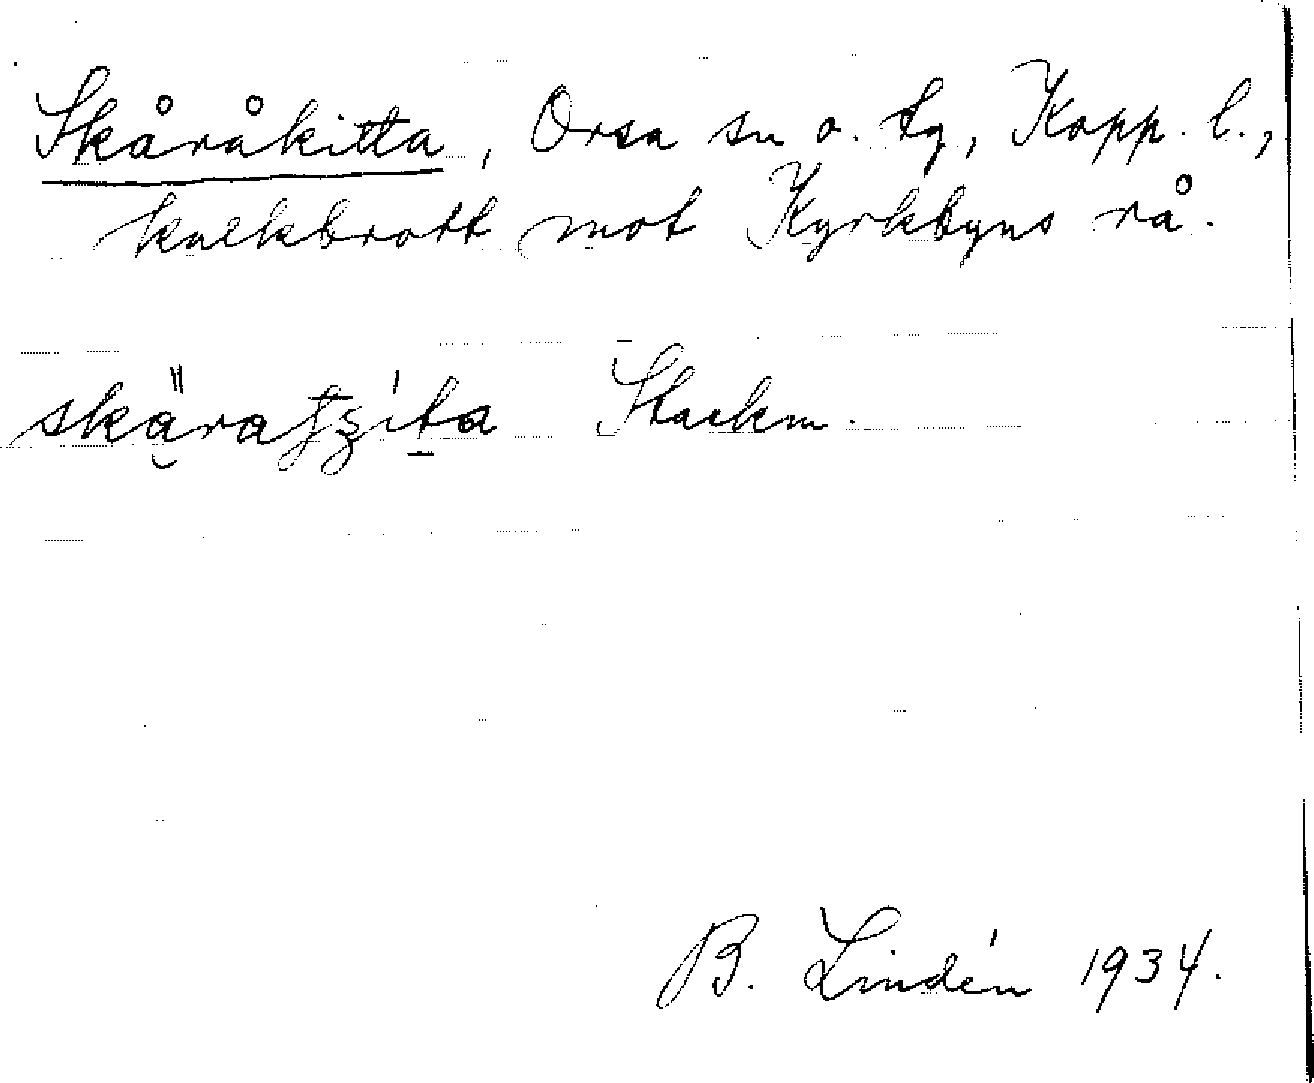 Skåråkitta, Orsa sn o. tg, Kopp. l.,
kalkbrott mot Kyrkbyns rå.
Stackm.
B. Lindén 1934.